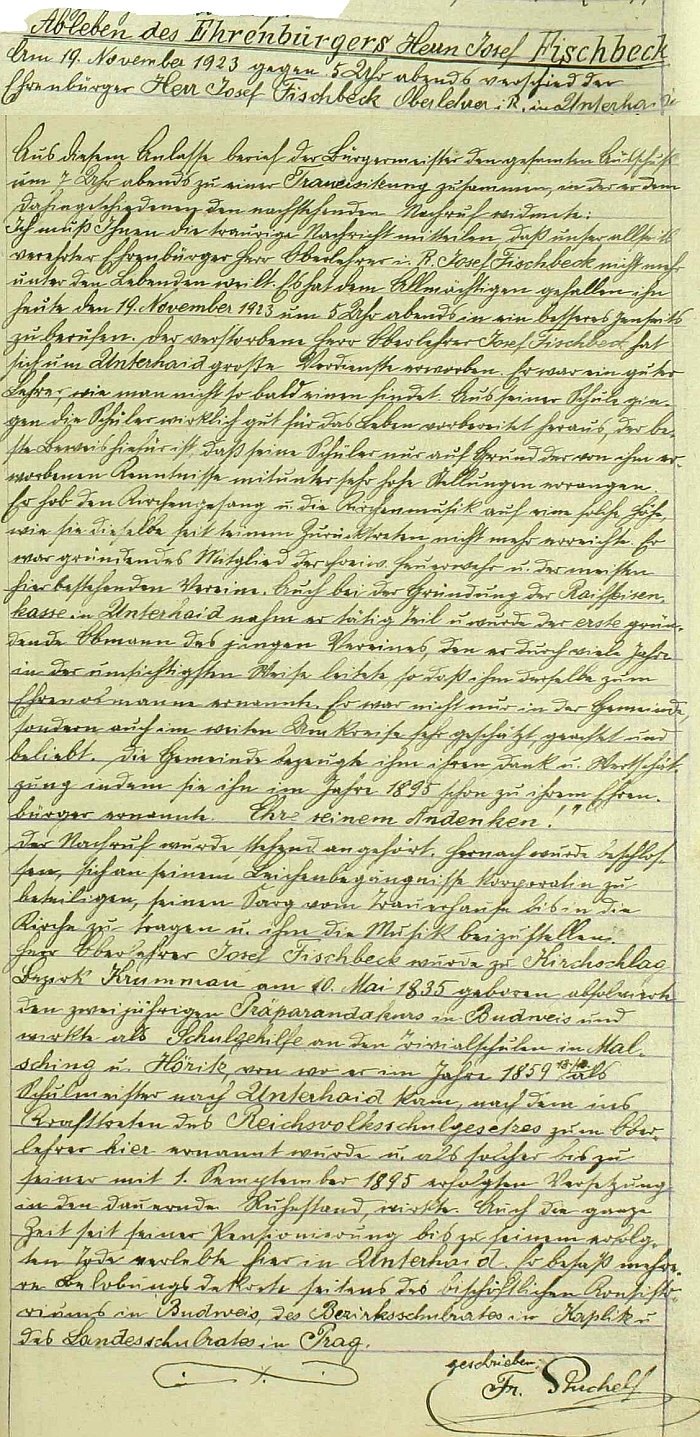 Ableben des Ehrenbürgers Herrn Josef Fischbeck
Am 19. November 1923 gegen 5 Uhr abends verschied der
Ehrenbürger Herr Josef Fischbeck Oberlehrer i. R. in Unterhaid
Aus diesem Anlasse berief der Bürgermeister den gesamten Ausschuß
um 7 Uhr abends zu einer Trauersitzung zusammen, in der er dem
Dahingeschiedenen den nachstehenden Nachruf widmete:
Ich muß Ihnen die traurige Nachricht mitteilen, daß unser allseits
verehrter Ehrenbürger Herr Oberlehrer i. R. Josef Fischbeck nicht mehr
unter den Lebenden weilt. Es hat dem Allmächtigen gefallen ihn
heute den 19. November 1923 um 5 Uhr abends in ein besseres Jenseits
zu berufen. Der verstorbene Herr Oberlehrer Josef Fischbeck hat
sich um Unterhaid große Verdienste erworben. Er war ein guter
Lehrer, wie man nicht so bald einen findet. Aus seiner Schule gin-
gen die Schüler wirklich gut für das Leben vorbereitet heraus, der be-
ste Beweis hiefür ist, daß seine Schüler nur auf Grund der von ihm er-
worbenen Kenntnisse mitunter sehr hohe Stellungen errangen.
Er hob den Kirchengesang u. die Kirchenmusik auf eine solche Höhe,
wie sie dieselbe seit seinem Zurücktreten nicht mehr erreichte. Er
war gründendes Mitglied der freiw. Feuerwehr u. der meisten
hier bestehenden Vereine. Auch bei der Gründung der Raiffeisen-
kasse in Unterhaid nahm er tätig Teil u. wurde der erste grün-
dende Obmann des jungen Vereines, den er durch viele Jahre
in der umsichtigsten Weise leitete, so daß ihn derselbe zum
Ehrenobmanne ernannte. Er war nicht nur in der Gemeinde,
sondern auch im weiten Umkreise sehr geschätzt, geachtet und
beliebt. Die Gemeinde bezeugte ihm ihren Dank u. Wertschät-
zung indem sie ihn im Jahre 1895 schon zu ihrem Ehren-
bürger ernannte. Ehre seinem Andenken!"
Der Nachruf wurde stehend angehört. Hernach wurde beschlos-
sen, sich an seinem Leichenbegängnisse korporativ zu
beteiligen, seinen Sarg vom Trauerhause bis in die
Kirche zu tragen u. ihm die Musik beizustellen.
Herr Oberlehrer Josef Fischbeck wurde zu Kirchschlag
Bezirk Krummau am 10. Mai 1835 geboren absolvierte
den zweijährigen Präparandakurs in Budweis und
wirkte als Schulgehilfe an den Trivialschulen in Mal-
sching u. Höritz, von wo er im Jahre 1859 als
Schulmeister nach Unterhaid kam, nach dem ins
Krafttreten des Reichsvolksschulgesetzes zum Ober-
lehrer hier ernannt wurde u. als solcher bis zu
seiner mit 1. Semptember 1895 erfolgten Versetzung
in den dauernden Ruhestand, wirkte. Auch die ganze
Zeit seit seiner Pensionierung bis zu seinem erfolg-
ten Tode verlebte hier in Unterhaid. Er besaß mehre-
re Belobungsdekrete seitens des bischöflichen Konsisto-
riums in Budweis, des Bezirksschulrates in Kaplitz u.
des Landesschulrates in Prag.
geschrieben:
Fr.